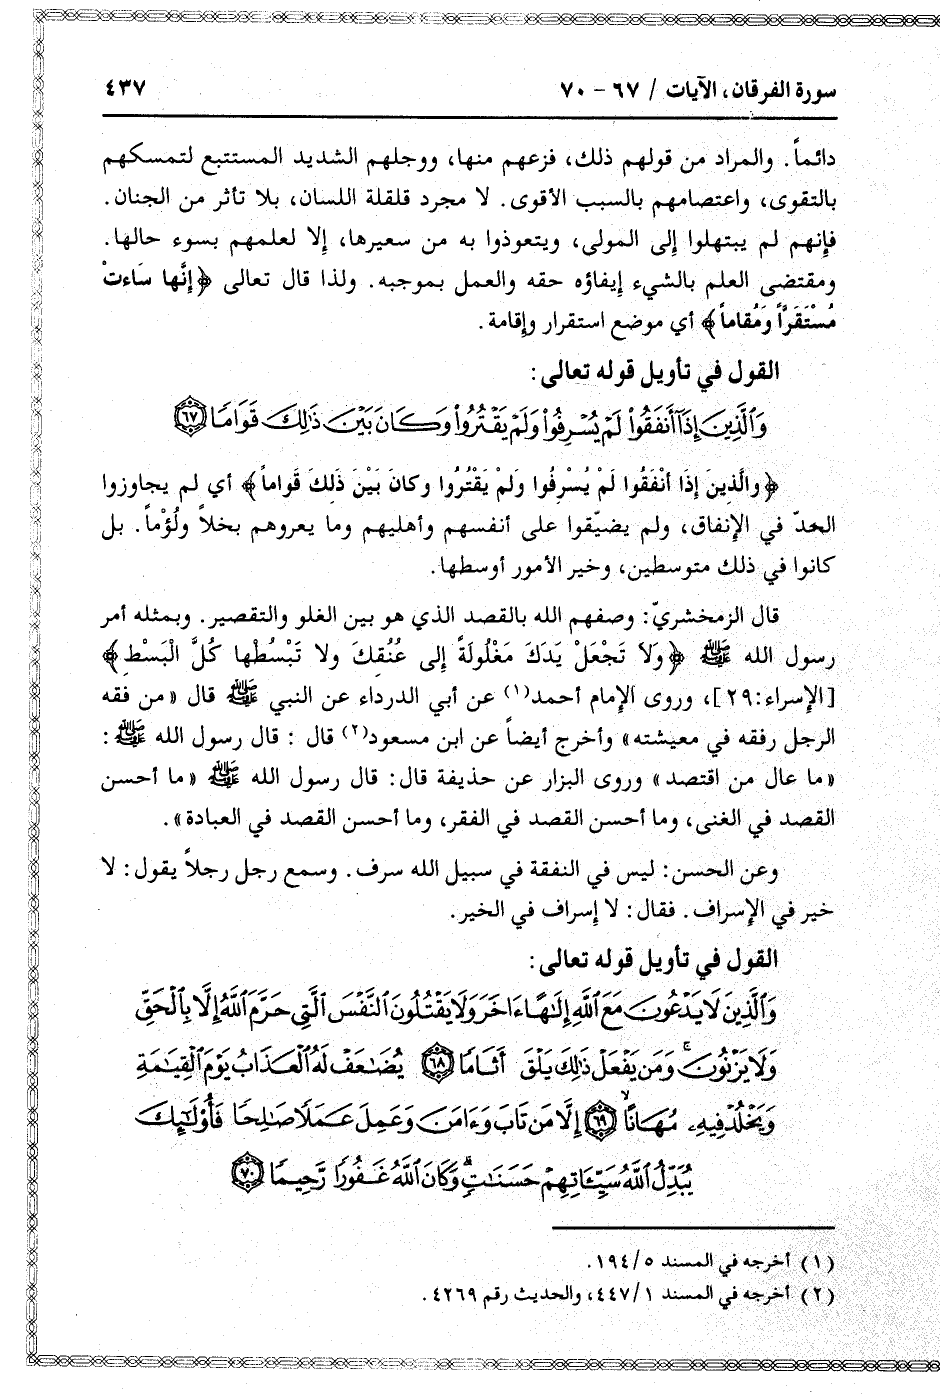 سورة الفرقان، الآيات / ٦٧ - ٧٠ ٤٣٧
دائماً. والمراد من قولهم ذلك، فزعهم منها، ووجلهم الشديد المستتبع لتمسكهم
بالتقوى، واعتصامهم بالسبب الأقوى. لا مجرد قلقلة اللسان، بلا تأثر من الجنان.
فإنهم لم يبتهلوا إلى المولى، ويتعوذوا به من سعيرها، إلا لعلمهم بسوء حالها.
ومقتضى العلم بالشيء إيفاؤه حقه والعمل بموجبه. ولذا قال تعالى ﴿إنَّها سَاءتْ
مُسْتَقَرّاً وَمُقاماً﴾ أي موضع استقرار وإقامة.
القول في تأويل قوله تعالى:
وَٱلَّذِينَ إِذَآ أَنفَقُوا۟ لَمْ يُسْرِفُوا۟ وَلَمْ يَقْتُرُوا۟ وَكَانَ بَيْنَ ذَٰلِكَ قَوَامًا ٦٧
﴿والَّذِينَ إِذَا أنْفَقُوا لَمْ يُسْرِفُوا ولَمْ يَقْتُرُوا وكانَ بَيْنَ ذَلِكَ قَواماً﴾ أي لم يجاوزوا
الحدّ في الإنفاق، ولم يضيّقوا على أنفسهم وأهليهم وما يعروهم بخلاً ولُؤْماً. بل
كانوا في ذلك متوسطين، وخير الأمور أوسطها.
قال الزمخشريّ: وصفهم الله بالقصد الذي هو بين الغلو والتقصير. وبمثله أمر
رسول الله ﷺ ﴿وَلاَ تَجْعَلْ يَدَكَ مَغْلُولَةً إلى عُنُقِكَ ولا تَبْسُطْها كُلَّ الْبَسْطِ﴾
[الإسراء:٢٩]، وروى الإمام أحمد(١) عن أبي الدرداء عن النبي ﷺ قال «من فقه
الرجل رفقه في معيشته» وأخرج أيضاً عن ابن مسعود(٢) قال : قال رسول الله ﷺ:
«ما عال من اقتصد» وروى البزار عن حذيفة قال: قال رسول الله ﷺ «ما أحسن
القصد في الغنى، وما أحسن القصد في الفقر، وما أحسن القصد في العبادة».
وعن الحسن: ليس في النفقة في سبيل الله سرف. وسمع رجل رجلاً يقول: لا
خير في الإسراف. فقال: لا إسراف في الخير.
القول في تأويل قوله تعالى:
وَٱلَّذِينَ لَا يَدْعُونَ مَعَ ٱللَّهِ إِلَٰهًا ءَاخَرَ وَلَا يَقْتُلُونَ ٱلنَّفْسَ ٱلَّتِى حَرَّمَ ٱللَّهُ إِلَّا بِٱلْحَقِّ
وَلَا يَزْنُونَ ۚ وَمَن يَفْعَلْ ذَٰلِكَ يَلْقَ أَثَامًا ٦٨ يُضَٰعَفْ لَهُ ٱلْعَذَابُ يَوْمَ ٱلْقِيَٰمَةِ
وَيَخْلُدْ فِيهِۦ مُهَانًا ٦٩ إِلَّا مَن تَابَ وَءَامَنَ وَعَمِلَ عَمَلًا صَٰلِحًا فَأُو۟لَٰٓئِكَ
يُبَدِّلُ ٱللَّهُ سَيِّـَٔاتِهِمْ حَسَنَٰتٍ ۗ وَكَانَ ٱللَّهُ غَفُورًا رَّحِيمًا ٧٠
(١) أخرجه في المسند ٥/ ١٩٤.
(٢) أخرجه في المسند ١/ ٤٤٧، والحديث رقم ٤٢٦٩.